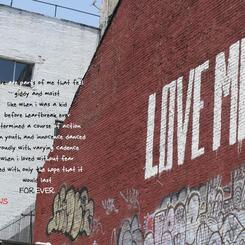 re are parts of me that fel
giddy and moist
like when i was a kid
before heartbreak eve
termined a course of action
n youth, and innocence danced
oudly with varying cadence
when i loved without fear
ed with, only the hope that it
would last
FOREVER.
NS
LOVE M